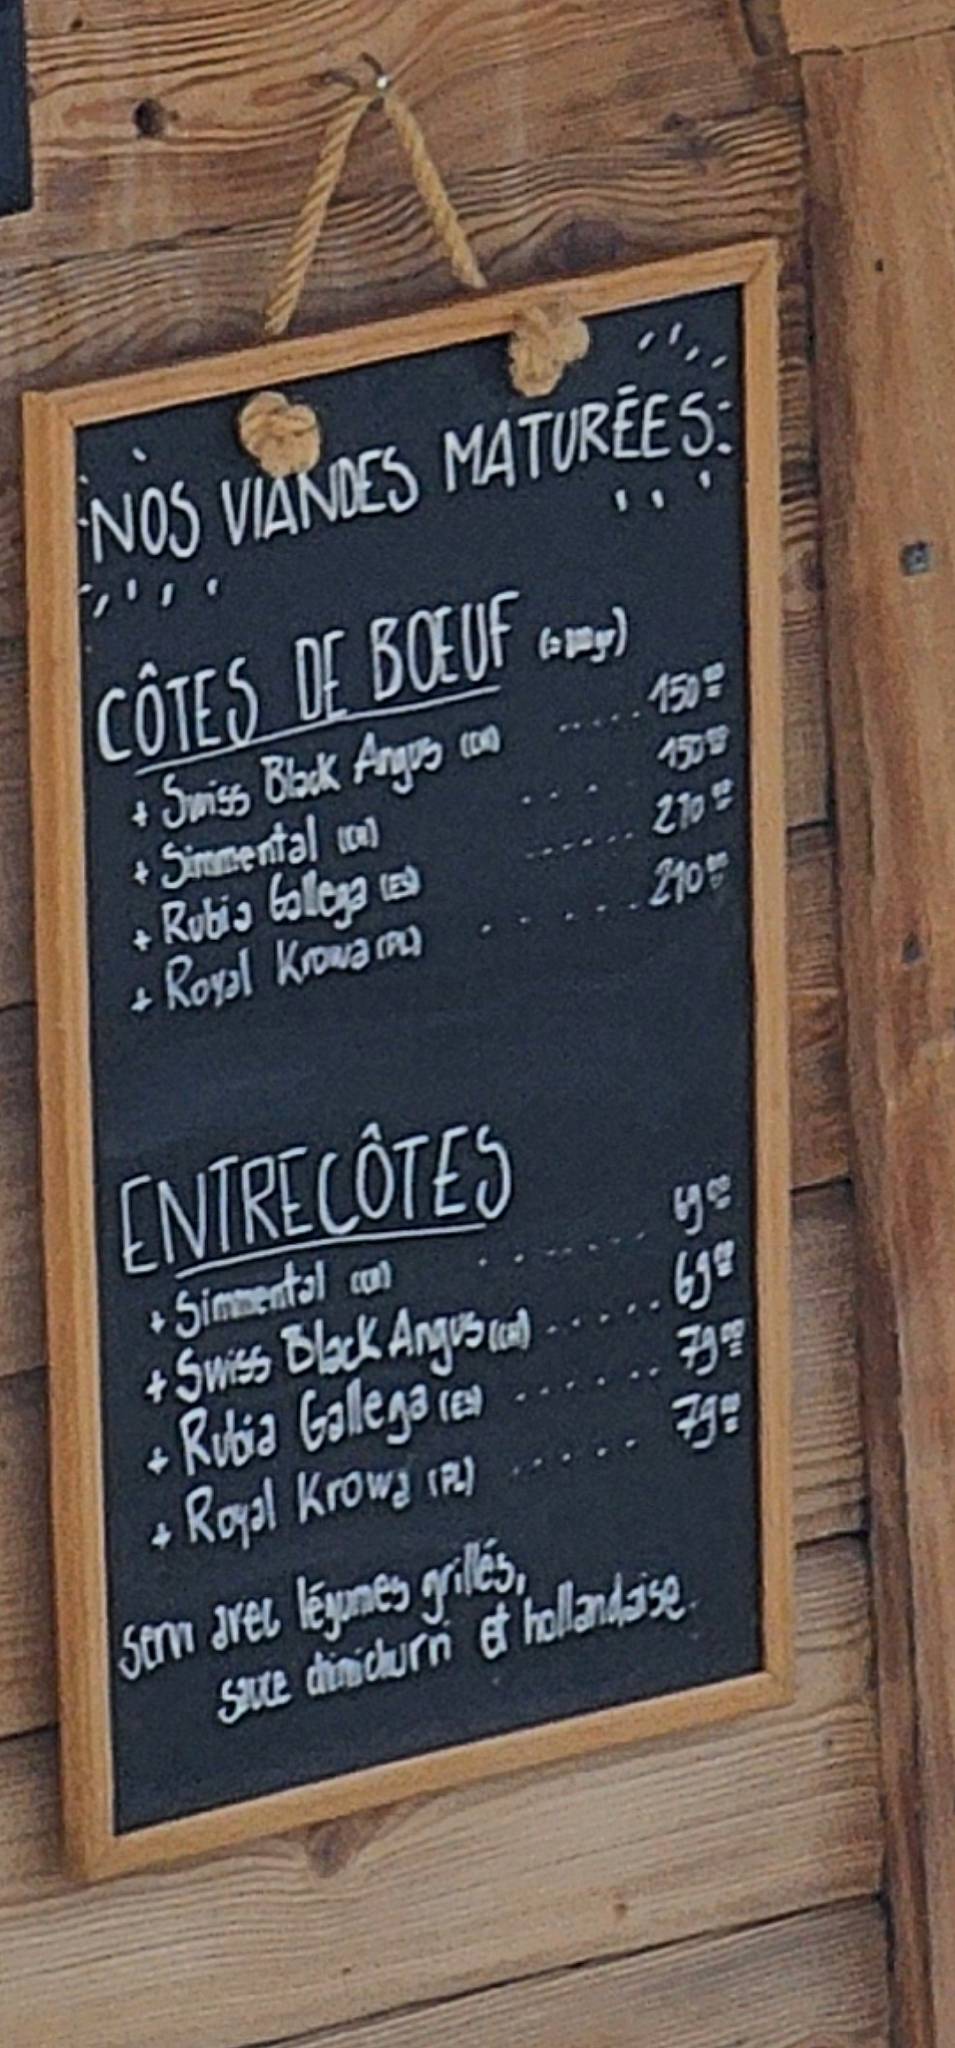 NOS VIANDES MATURÉES:
CÔTES DE BŒUF
+ Swiss Black Angus (CH) ..... 150.00
+ Simmental (CH) .... 150.00
+ Rubia Gallega (ES) ...... 210.00
+ Royal Krowa (PL) ...... 210.00
ENTRECÔTES
+ Simmental (CH) ........ 69.00
+ Swiss Black Angus (CH) ...... 69.00
+ Rubia Gallega (ES) ...... 79.00
+ Royal Krowa (PL) ...... 79.00
Servi avec légumes grillés,
sauce chimichurri et hollandaise.